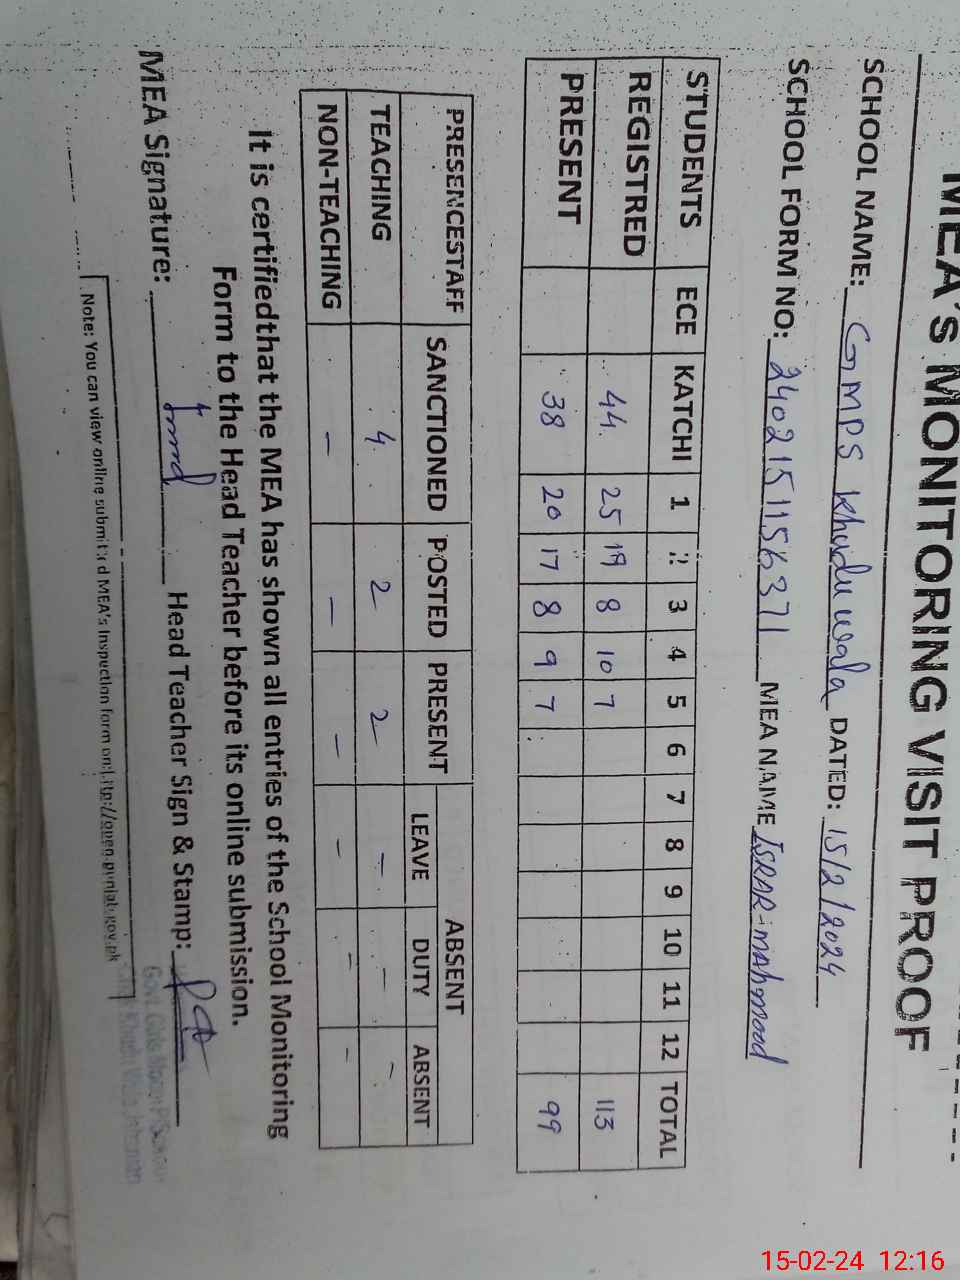 MEA's MONITORING VISIT PROOF
SCHOOL NAME: GMPS Khudu wala DATED: 15/2/2024
SCHOOL FORM NO: 2402151156371 MEA NAME ISRAR-mahmood
STUDENTS ECE KATCHI 1 2 3 4 5 6 7 8 9 10 11 12 TOTAL
REGISTRED 44 25 19 8 10 7 113
PRESENT 38 20 17 8 9 7 99
PRESENCESTAFF SANCTIONED POSTED PRESENT ABSENT
LEAVE DUTY ABSENT
TEACHING 4 2 2 - - -
NON-TEACHING - - - - - -
It is certifiedthat the MEA has shown all entries of the School Monitoring
Form to the Head Teacher before its online submission.
MEA Signature: Head Teacher Sign & Stamp:
Govt. Girls Model P/School
Note: You can view online submitted MEA's Inspection form on:http://open.punjab.gov.pk
15-02-24 12:16